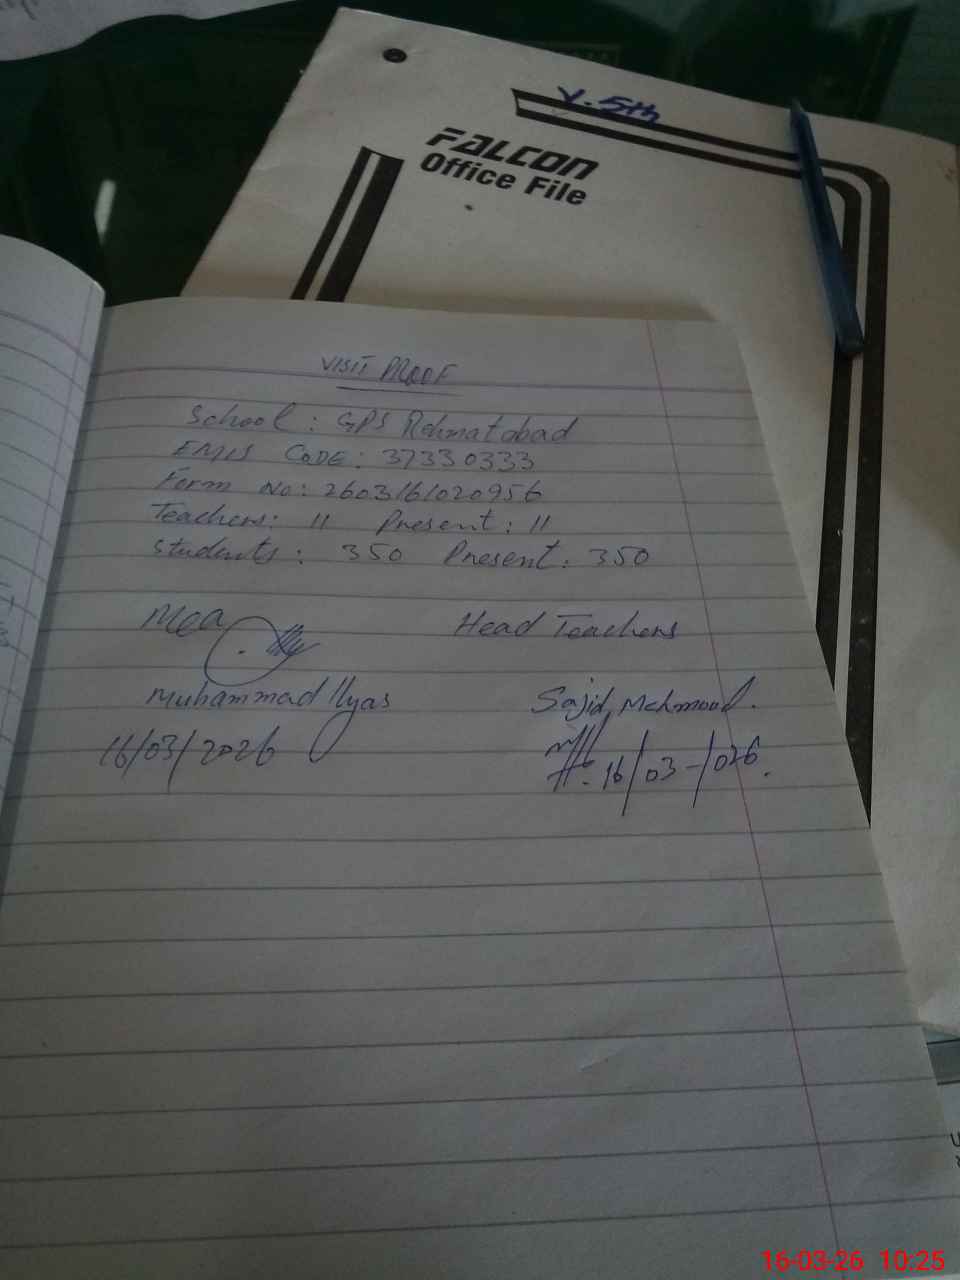 V. 5th
FALCON
Office File
VISIT PROOF
School : GPS Rehmatabad
EMIS CODE : 37330333
Form No : 2603161020956
Teachers : 11 Present : 11
Students : 350 Present : 350
Mea
Head Teachers
Muhammad Ilyas
Sajid Mehmood.
16/03/2026
16/03-/026.
16-03-26 10:25